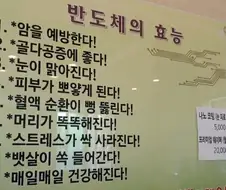 반도체의 효능
*암을 예방한다!
*골다공증에 좋다!
*눈이 맑아진다!
*피부가 뽀얗게 된다!
*혈액 순환이 뻥 뚫린다!
*머리가 똑똑해진다!
*스트레스가 싹 사라진다!
*뱃살이 쏙 들어간다!
*매일매일 건강해진다!
나노 코팅
5,000
20,000